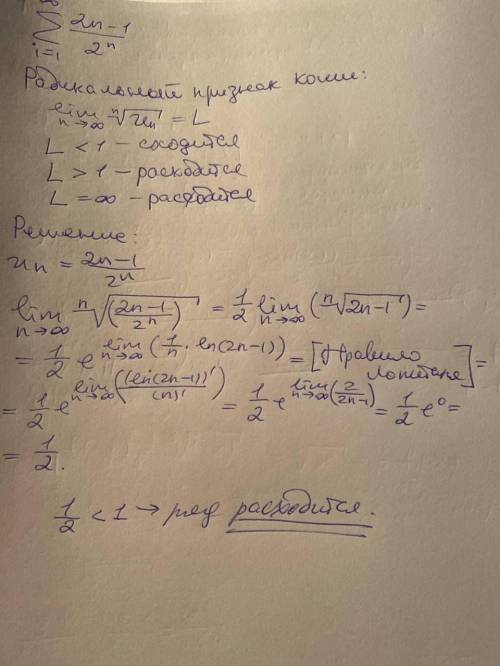 ∞
∑ (2n-1)/2ⁿ
i=1
Радикальный признак коши:
lim n→∞ ⁿ√uₙ = L
L < 1 – сходится
L > 1 – расходится
L = ∞ – расходится
Решение:
uₙ = (2n-1)/2ⁿ
lim n→∞ ⁿ√((2n-1)/2ⁿ) = 1/2 lim n→∞ (ⁿ√(2n-1)) =
= 1/2 e^(lim n→∞ (1/n · ln(2n-1))) = [Правило Лопиталя] =
= 1/2 e^(lim n→∞ ((ln(2n-1))'/(n)')) = 1/2 e^(lim n→∞ (2/(2n-1))) = 1/2 e⁰ =
= 1/2.
1/2 < 1 → ряд расходится.